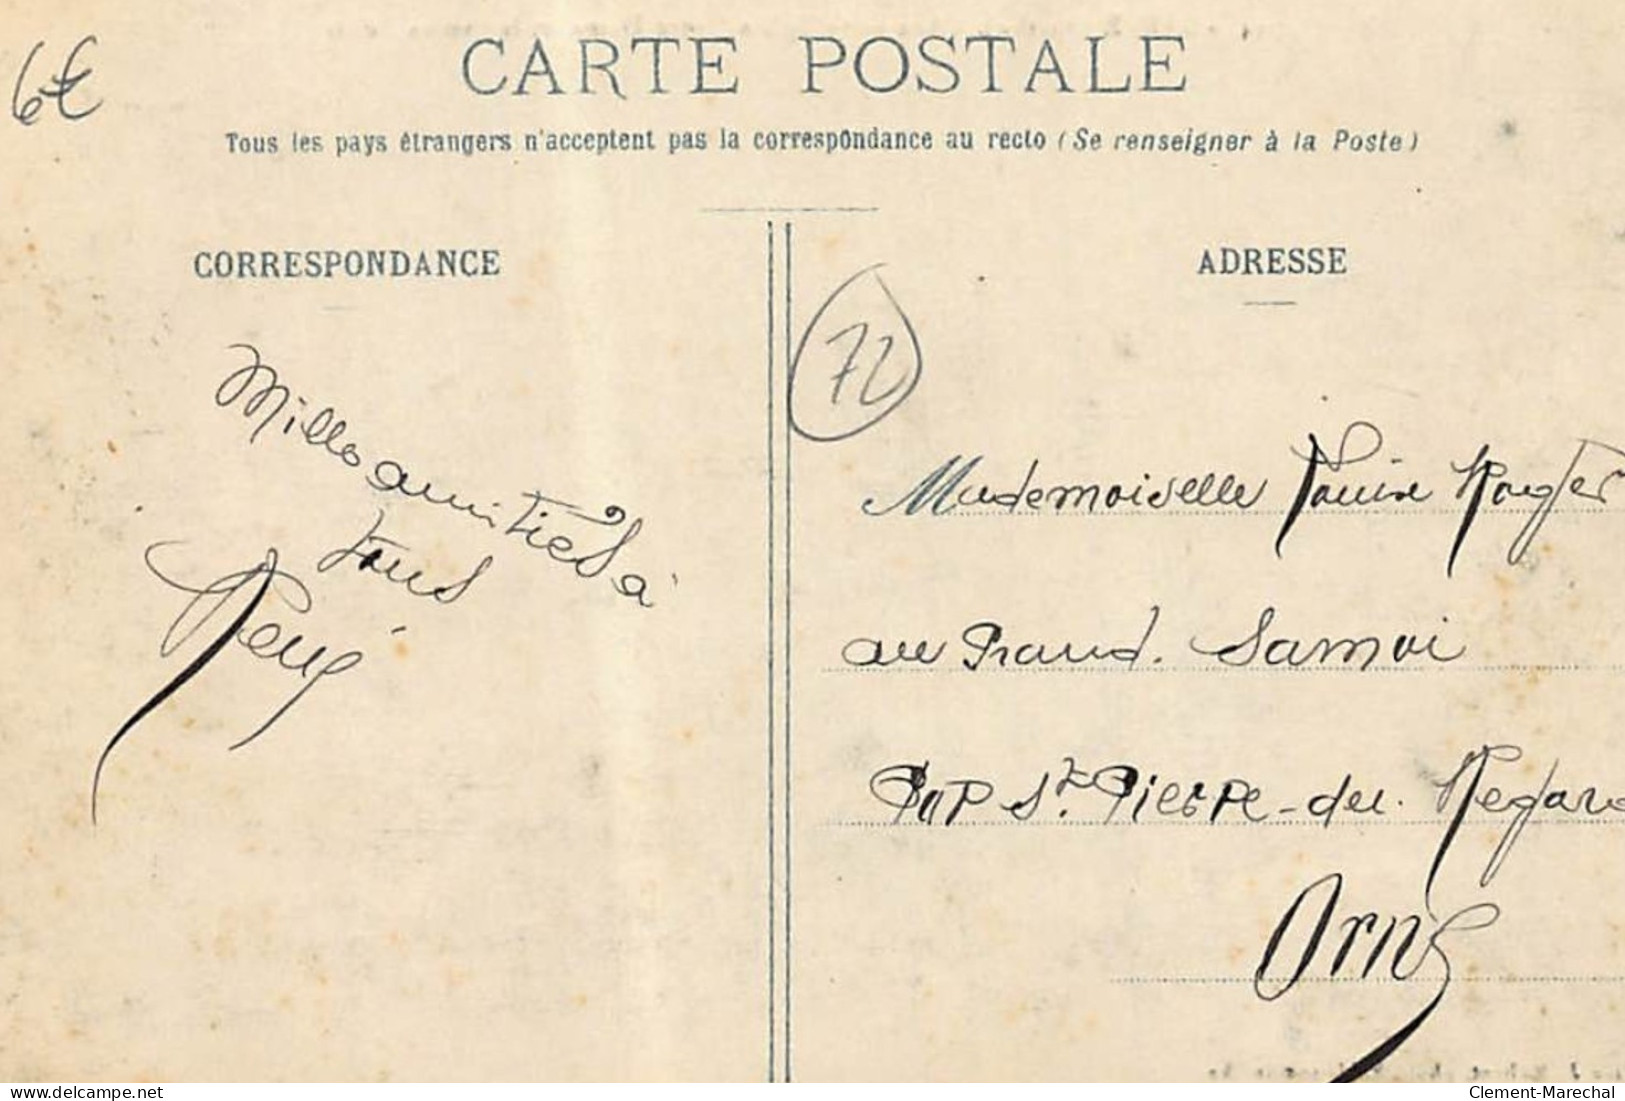 6€
CARTE POSTALE
Tous les pays étrangers n'acceptent pas la correspondance au recto (Se renseigner à la Poste)
CORRESPONDANCE
ADRESSE
72
Mille amitiés à
tous
Mademoiselle Louise Roger
au Grand. Samoi
Par St. Pierre-du. Regard
Orne
Clement-Marechal